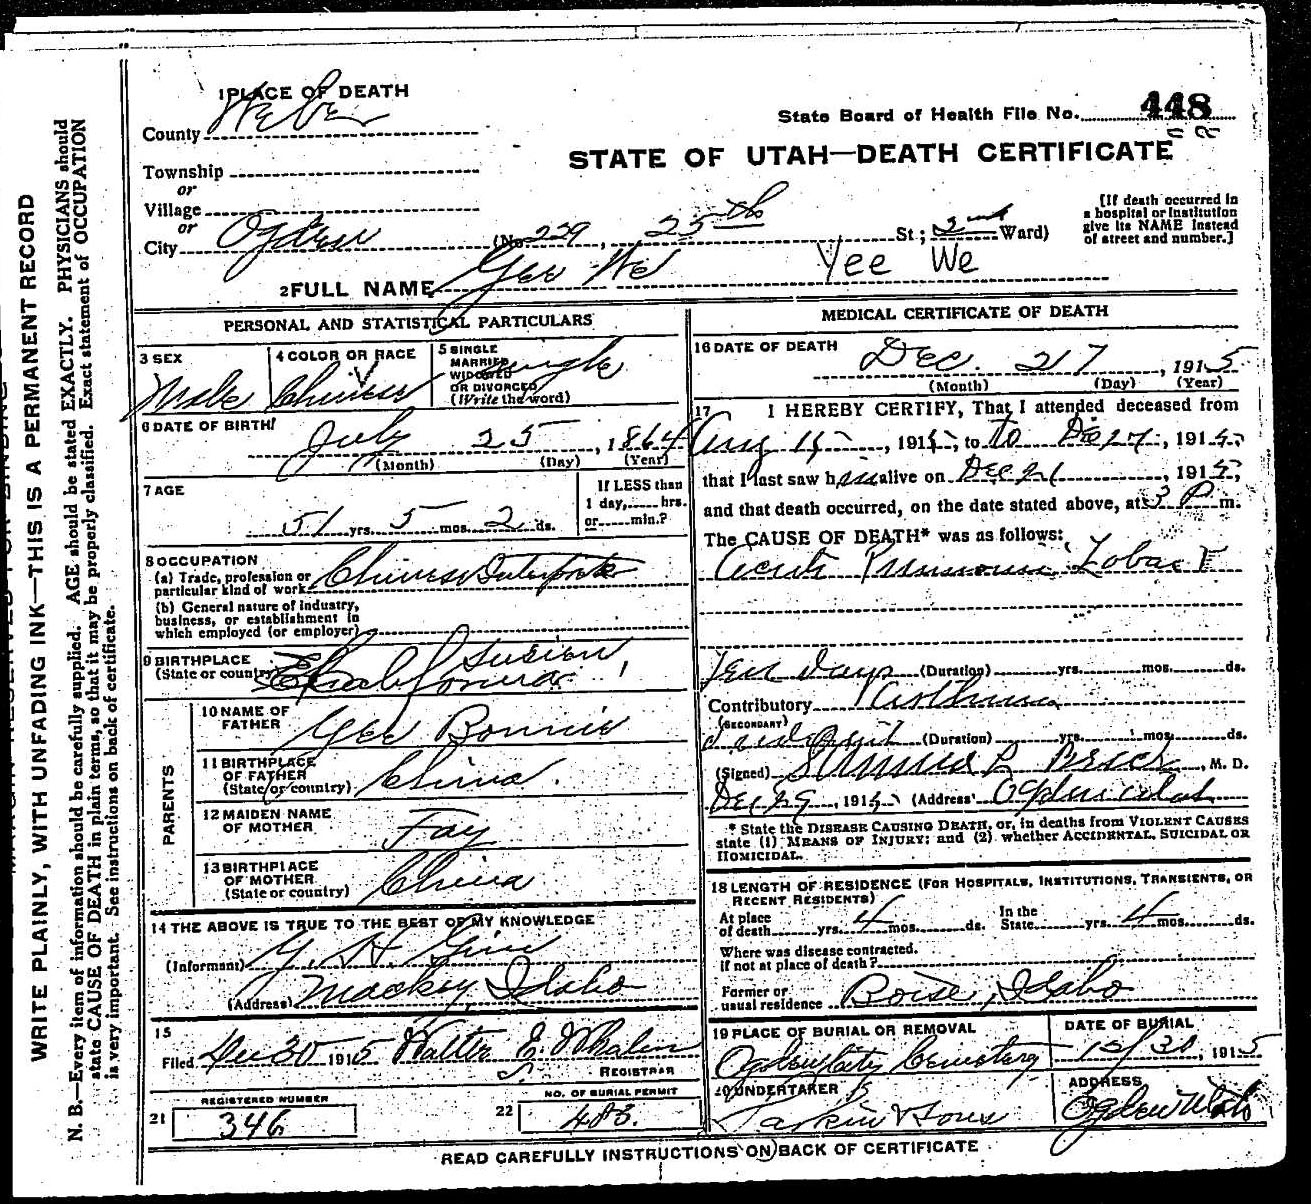 1 PLACE OF DEATH
County Weber
State Board of Health File No. 448
STATE OF UTAH—DEATH CERTIFICATE
Township
or
Village
or
City Ogden (No. 229, 25th St; 2nd Ward)
[If death occurred in
a hospital or institution
give its NAME instead
of street and number.]
2 FULL NAME Yee We Yee We
PERSONAL AND STATISTICAL PARTICULARS
3 SEX
Male
4 COLOR OR RACE
Chinese
5 SINGLE
MARRIED
WIDOWED
OR DIVORCED
(Write the word)
Single
6 DATE OF BIRTH
July 25, 1864
(Month) (Day) (Year)
7 AGE
51 yrs. 5 mos. 2 ds.
If LESS than
1 day, hrs.
or min.?
8 OCCUPATION
(a) Trade, profession or
particular kind of work Chinese
(b) General nature of industry,
business, or establishment in
which employed (or employer)
9 BIRTHPLACE
(State or country) California
PARENTS
10 NAME OF
FATHER
Yee Bonnie
11 BIRTHPLACE
OF FATHER
(State or country)
China.
12 MAIDEN NAME
OF MOTHER
Fay
13 BIRTHPLACE
OF MOTHER
(State or country)
China
14 THE ABOVE IS TRUE TO THE BEST OF MY KNOWLEDGE
(Informant) Y. H. Gin
(Address) Mackey, Idaho
15
Filed Dec 30 1915 Walter E. Whalen
REGISTRAR
REGISTERED NUMBER
21 346
NO. OF BURIAL PERMIT
22 483.
MEDICAL CERTIFICATE OF DEATH
16 DATE OF DEATH
Dec. 27, 1915
(Month) (Day) (Year)
17 I HEREBY CERTIFY, That I attended deceased from
Aug 15, 1915, to to Dec 27, 1915
that I last saw him alive on Dec 21, 1915,
and that death occurred, on the date stated above, at 3 P m.
The CAUSE OF DEATH* was as follows:
Acute Pneumonia Lobar
Ten days (Duration) yrs. mos. ds.
Contributory Asthma
(SECONDARY)
(Duration) yrs. mos. ds.
(Signed) M. D.
Dec 29, 1915 (Address) Ogden Utah
* State the DISEASE CAUSING DEATH, or, in deaths from VIOLENT CAUSES
state (1) MEANS OF INJURY; and (2) whether ACCIDENTAL, SUICIDAL OR
HOMICIDAL.
18 LENGTH OF RESIDENCE (FOR HOSPITALS, INSTITUTIONS, TRANSIENTS, OR
RECENT RESIDENTS)
At place
of death yrs. 4 mos. ds.
In the
State yrs. 4 mos. ds.
Where was disease contracted.
If not at place of death?
Former or
usual residence Boise, Idaho
19 PLACE OF BURIAL OR REMOVAL
Ogden City Cemetery
DATE OF BURIAL
12/30, 1915
20 UNDERTAKER
Larkin & Sons
ADDRESS
Ogden Utah
READ CAREFULLY INSTRUCTIONS ON BACK OF CERTIFICATE
WRITE PLAINLY, WITH UNFADING INK—THIS IS A PERMANENT RECORD
N. B.—Every item of information should be carefully supplied. AGE should be stated EXACTLY. PHYSICIANS should
state CAUSE OF DEATH in plain terms, so that it may be properly classified. Exact statement of OCCUPATION
is very important. See instructions on back of certificate.